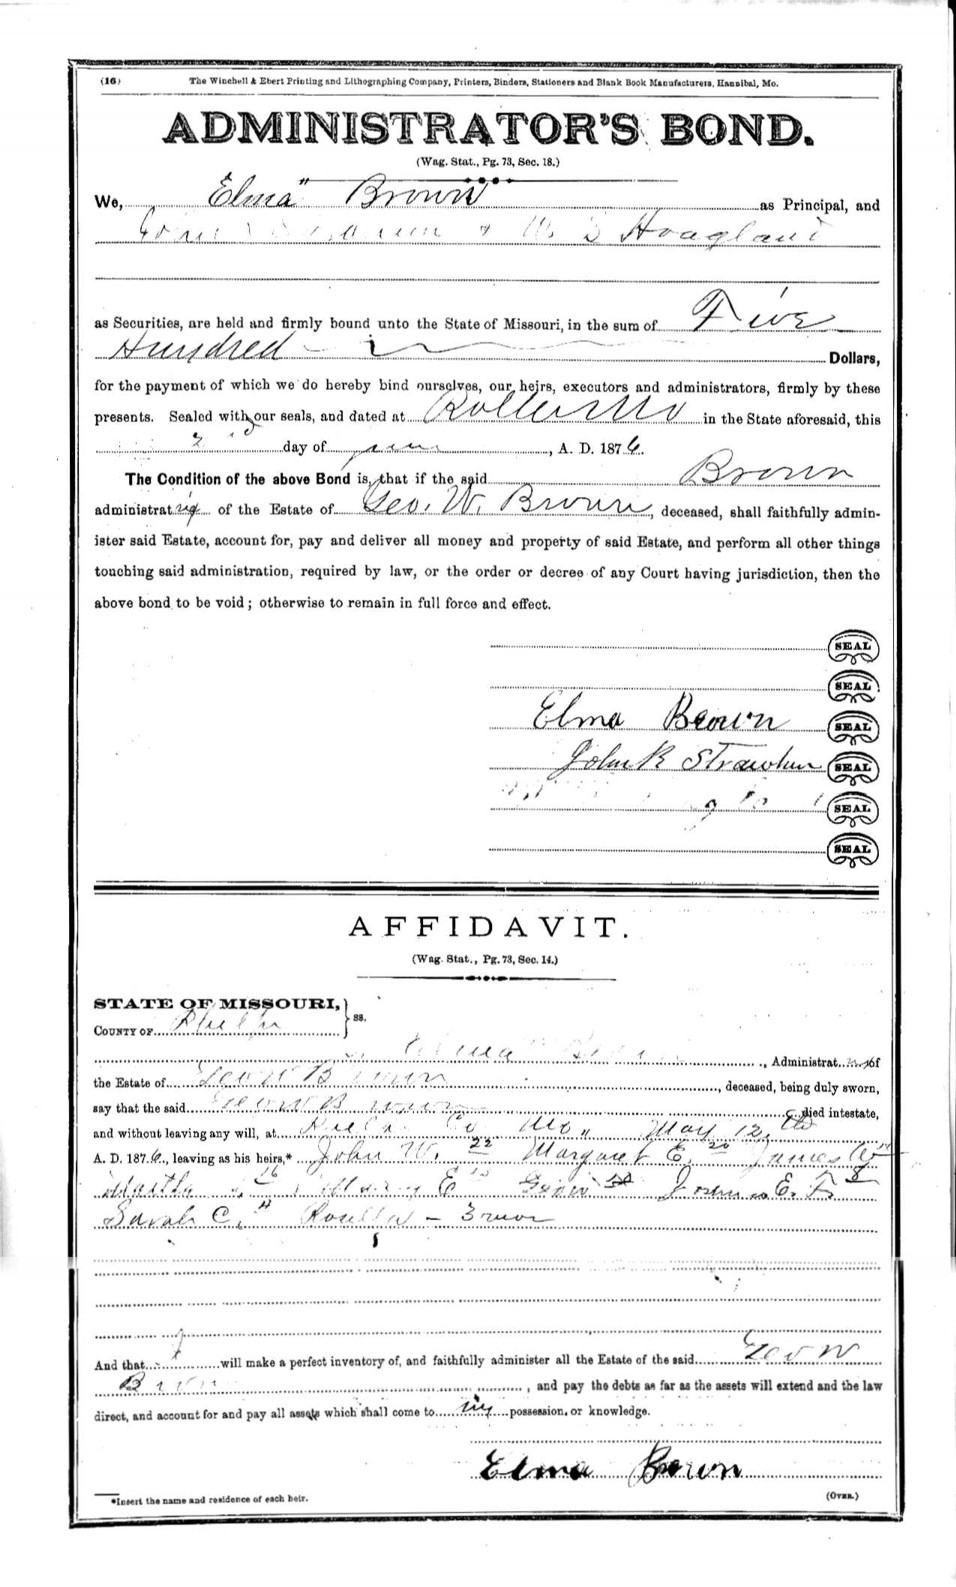 (16) The Winchell & Ebert Printing and Lithographing Company, Printers, Binders, Stationers and Blank Book Manufacturers, Hannibal, Mo.
ADMINISTRATOR'S BOND.
(Wag. Stat., Pg. 73, Sec. 18.)
We, "Elma" Brown as Principal, and
& W D Hoagland
as Securities, are held and firmly bound unto the State of Missouri, in the sum of Five
Hundred Dollars,
for the payment of which we do hereby bind ourselves, our heirs, executors and administrators, firmly by these
presents. Sealed with our seals, and dated at Rolla Mo in the State aforesaid, this
day of June, A. D. 1876.
The Condition of the above Bond is, that if the said Brown
administratrix of the Estate of Geo. W. Brown, deceased, shall faithfully admin-
ister said Estate, account for, pay and deliver all money and property of said Estate, and perform all other things
touching said administration, required by law, or the order or decree of any Court having jurisdiction, then the
above bond to be void; otherwise to remain in full force and effect.
SEAL
SEAL
Elma Brown SEAL
John R Strawhun SEAL
SEAL
SEAL
AFFIDAVIT.
(Wag. Stat., Pg. 73, Sec. 14.)
STATE OF MISSOURI, } ss.
COUNTY OF Phelps
Elma Brown, Administratrix of
the Estate of Geo W Brown, deceased, being duly sworn,
say that the said Geo W Brown died intestate,
and without leaving any will, at Phelps Co Mo, May 12th
A. D. 1876, leaving as his heirs,* John W. 22 Margaret E. 20 James
16 Mary E E. F. 8
Sarah C. Rosella -
And that I will make a perfect inventory of, and faithfully administer all the Estate of the said Geo W
Brown, and pay the debts as far as the assets will extend and the law
direct, and account for and pay all assets which shall come to my possession or knowledge.
Elma Brown
*Insert the name and residence of each heir. (OVER.)